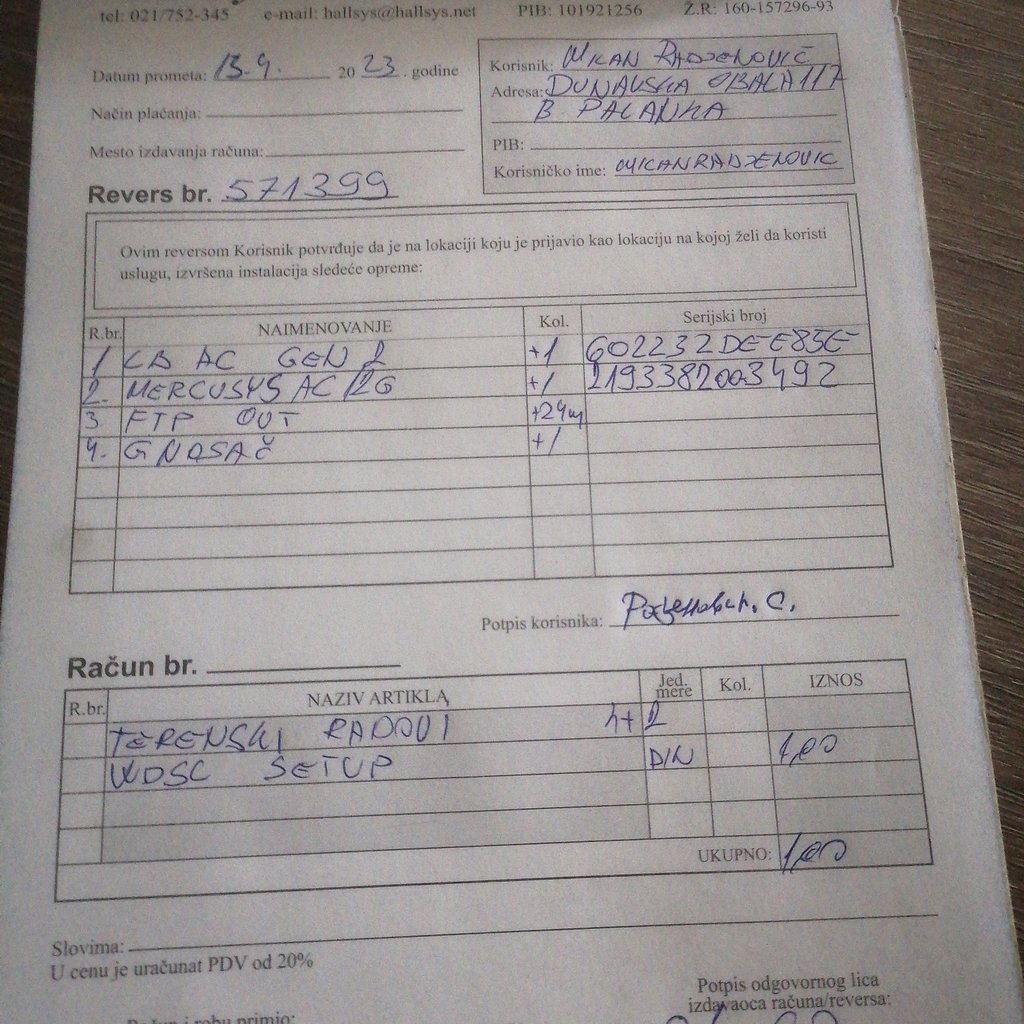 tel: 021/752-345 e-mail: hallsys@hallsys.net PIB: 101921256 Ž.R: 160-157296-93
Datum prometa: 13.9. 2023. godine
Način plaćanja:
Mesto izdavanja računa:
Korisnik: MIKAN RADJENOVIĆ
Adresa: DUNAVSKA OBALA 117
B. PALANKA
PIB:
Korisničko ime: MIKANRADJENOVIC
Revers br. 571399
Ovim reversom Korisnik potvrđuje da je na lokaciji koju je prijavio kao lokaciju na kojoj želi da koristi
uslugu, izvršena instalacija sledeće opreme:
R.br. NAIMENOVANJE Kol. Serijski broj
1 LB AC GEN 2 +1 602232DEE85E
2. MERCUSYS AC12G +1 2193382003492
3 FTP OUT +24m
4. G NOSAČ +1
Potpis korisnika: Рађеновић. С.
Račun br.
R.br. NAZIV ARTIKLA Jed. mere Kol. IZNOS
TERENSKI RADOVI h+ 2
WDSC SETUP DIN 1,00
UKUPNO: 1,00
Slovima:
U cenu je uračunat PDV od 20%
Potpis odgovornog lica
izdavaoca računa/reversa:
Račun i robu primio: